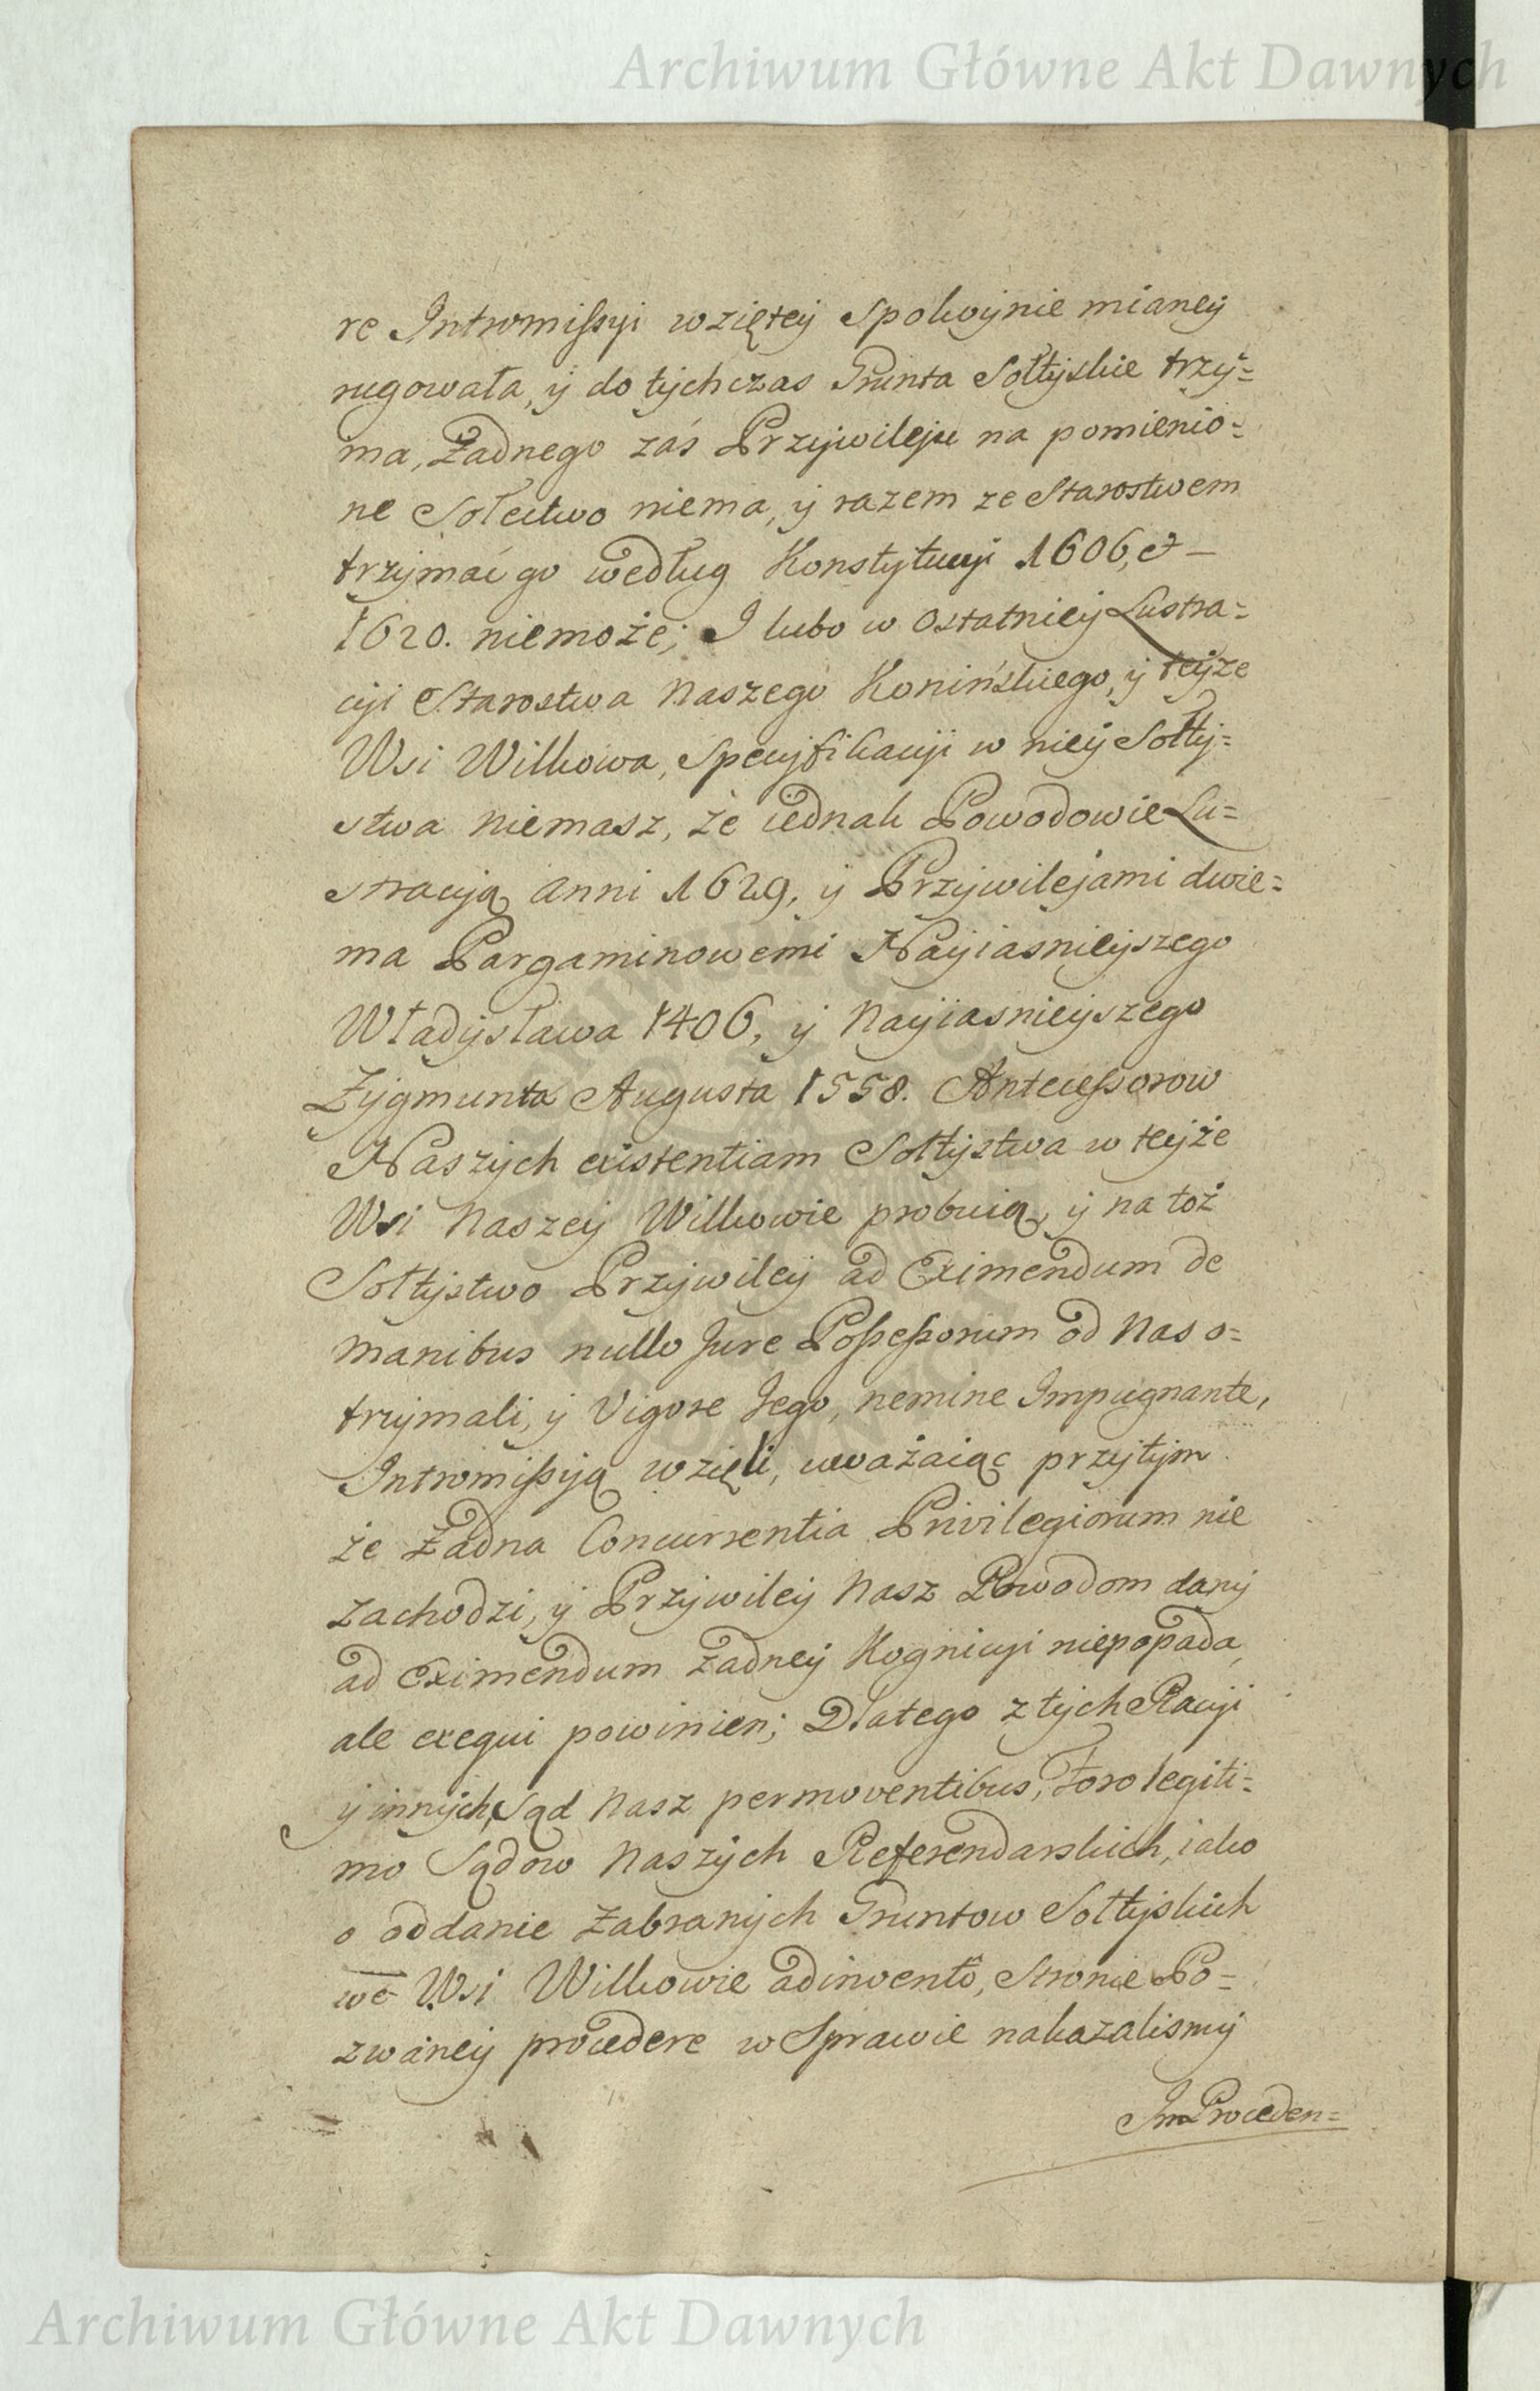 Archiwum Główne Akt Dawnych
re Intromissyi wziętey Spokoynie mianey
rugowała, y do tychczas Grunta Sołtyskie trzy=
ma, Żadnego zaś Przywileju na pomienio=
ne Sołectwo niema, y razem ze Starostwem
trzymać go według Konstytucyi 1606, et —
1620. niemoże; I lubo w Ostatniey Lustra=
cyi Starostwa Naszego Konińskiego, y teyże
Wsi Wilkowa, Specyfikacyi w niey Sołty=
stwa Niemasz, że iednak Powodowie Lu=
stracyą Anni 1629, y Przywilejami dwie=
ma Pargaminowemi Nayiasnieyszego
Władysława 1406, y Nayiasnieyszego
Zygmunta Augusta 1558. Antecessorow
Naszych existentiam Sołtystwa w teyże
Wsi Naszey Wilkowie probuią, y na toż
Sołtystwo Przywiley ad Eximendum de
manibus nullo Jure Possessorum od Nas o=
trzymali, y Vigore Jego, nemine Impugnante,
Intromissyą wzięli, uważaiąc przytym
że Żadna Concurrentia Privilegiorum nie
zachodzi, y Przywiley Nasz Powodom dany
ad Eximendum żadney Kognicyi niepopada,
ale exequi powinien; Dlatego z tych Racyi
y innych, Sąd Nasz permoventibus, Foro legiti=
mo Sądow Naszych Referendarskich, iako
o oddanie Zabranych Gruntow Sołtyskich
we Wsi Wilkowie adinvento, Stronie Po=
zwaney procedere w Sprawie nakazalismy
In Proceden=
Archiwum Główne Akt Dawnych